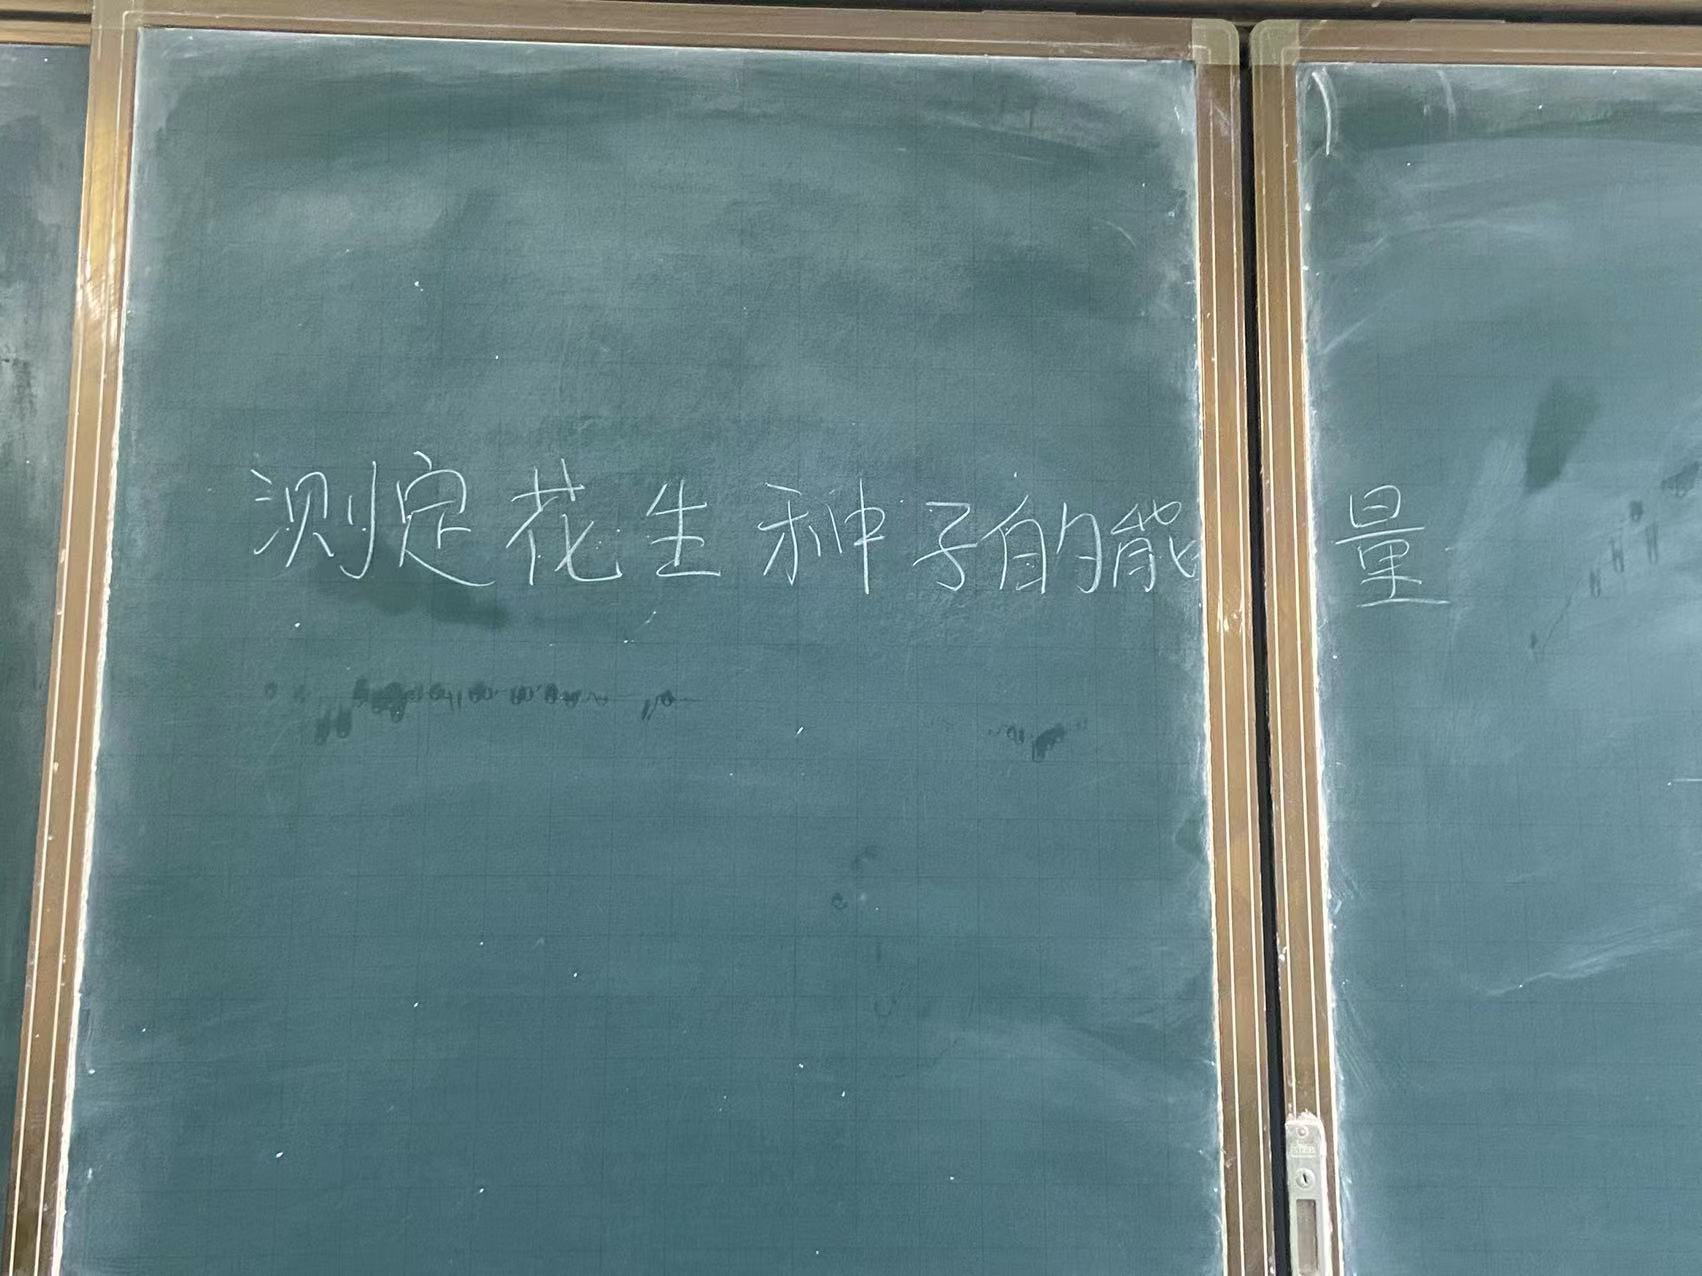 测定花生种子的能量